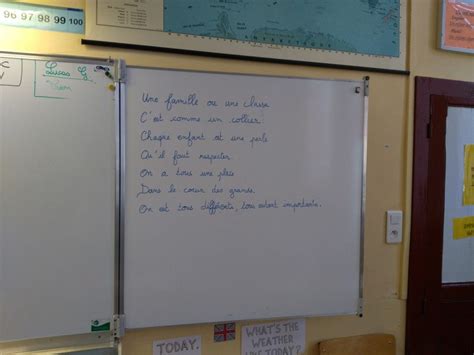 96 97 98 99 100
Lucas G
Une famille ou une classe
C'est comme un collier
Chaque enfant est une perle
Qu'il faut respecter.
On a tous une place
Dans le cœur des grands.
On est tous différents, tous autant importants.
TODAY.
WHAT'S THE
WEATHER
LIKE TODAY?